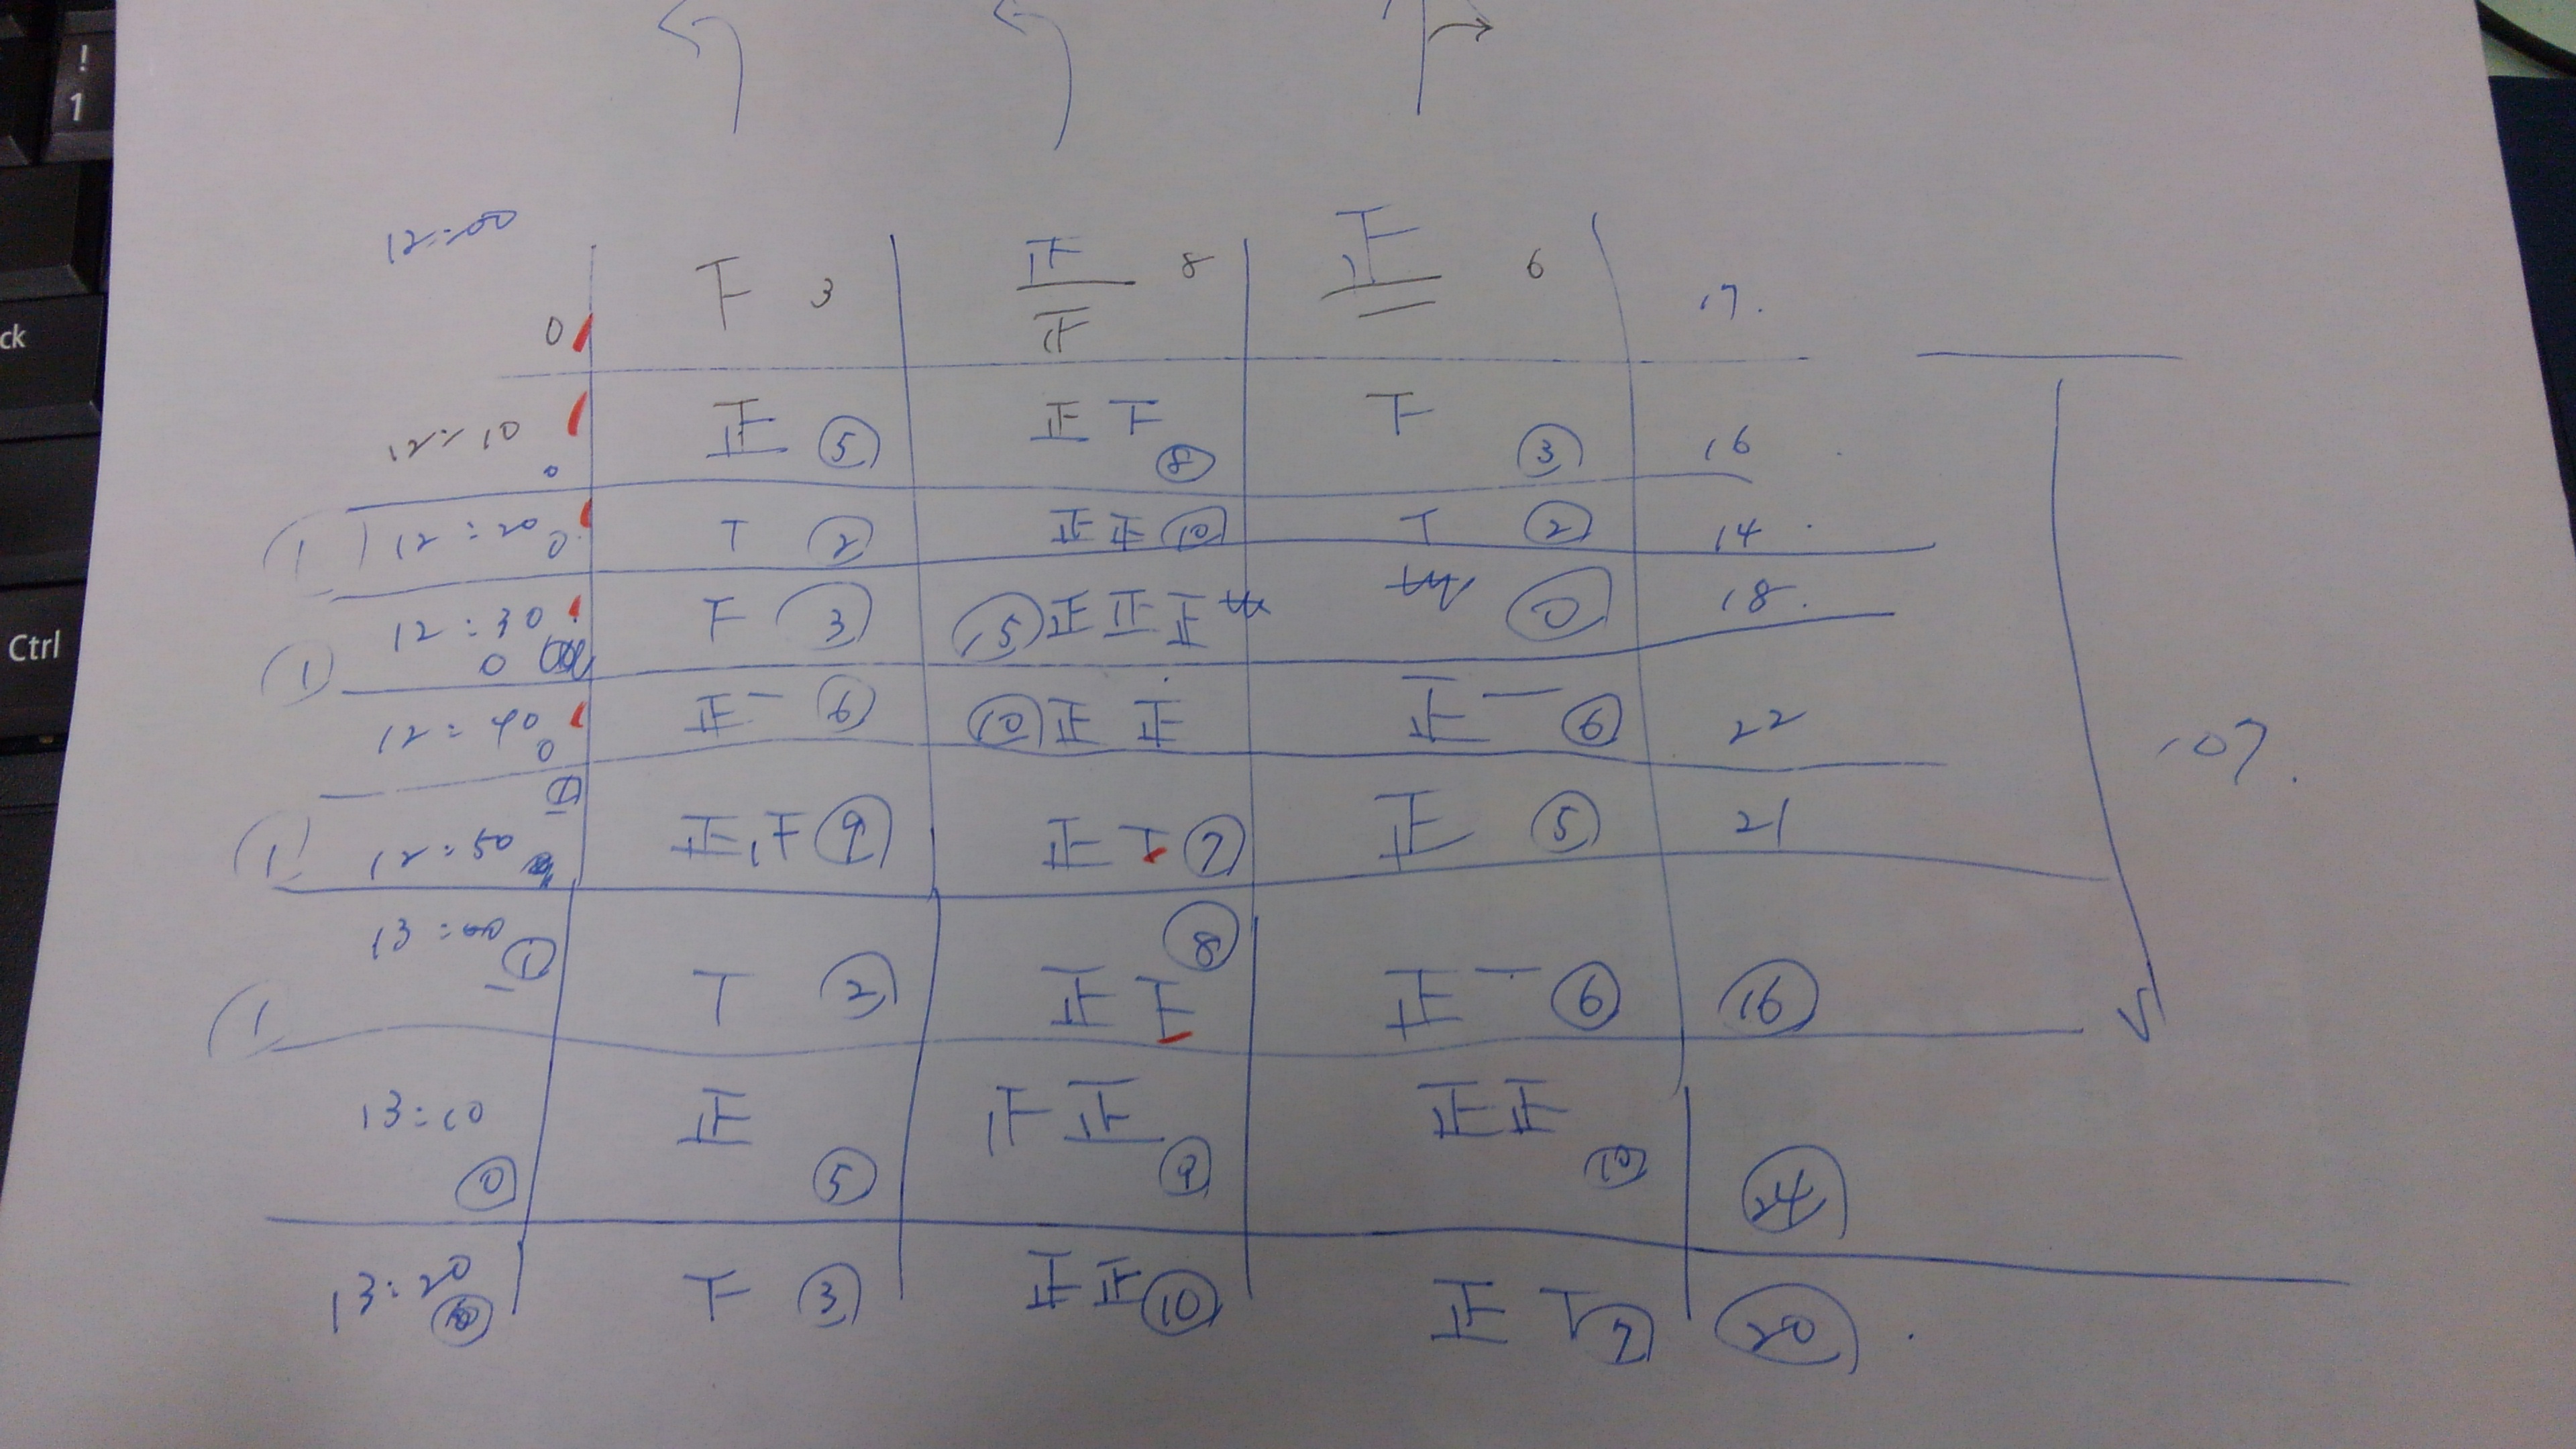 !
1
ck
Ctrl
12:00
0 3 8 6 17.
12:10 正 ⑤ 正 ⑧ ③ 16
0
(1) 12:20 0 ② 正正 ⑩ ② 14
12:30 ③ ⑮ 正正正 ⓪ 18.
(1) 0
12:40 0 正一 ⑥ ⑩ 正正 正一 ⑥ 22
107.
①
(1) 12:50 正 ⑨ 正 ⑦ 正 ⑤ 21
13:00 ① ② 正 ⑧ 正一 ⑥ ⑯
(1)
13:10 正 正 正正
⓪ ⑤ ⑨ ⑩ ㉔
13:20 ③ 正正 ⑩ 正 ⑦ ⑳